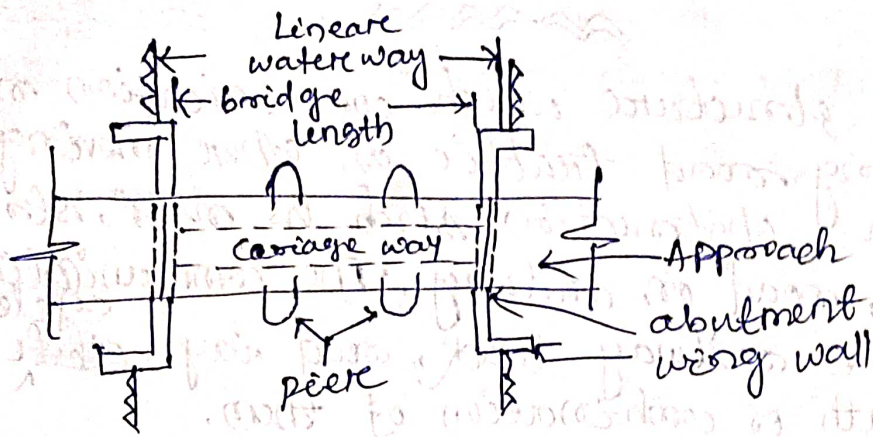 Lineare
watere way
bridge
length
Cariage way
Approach
abutment
wing wall
piere